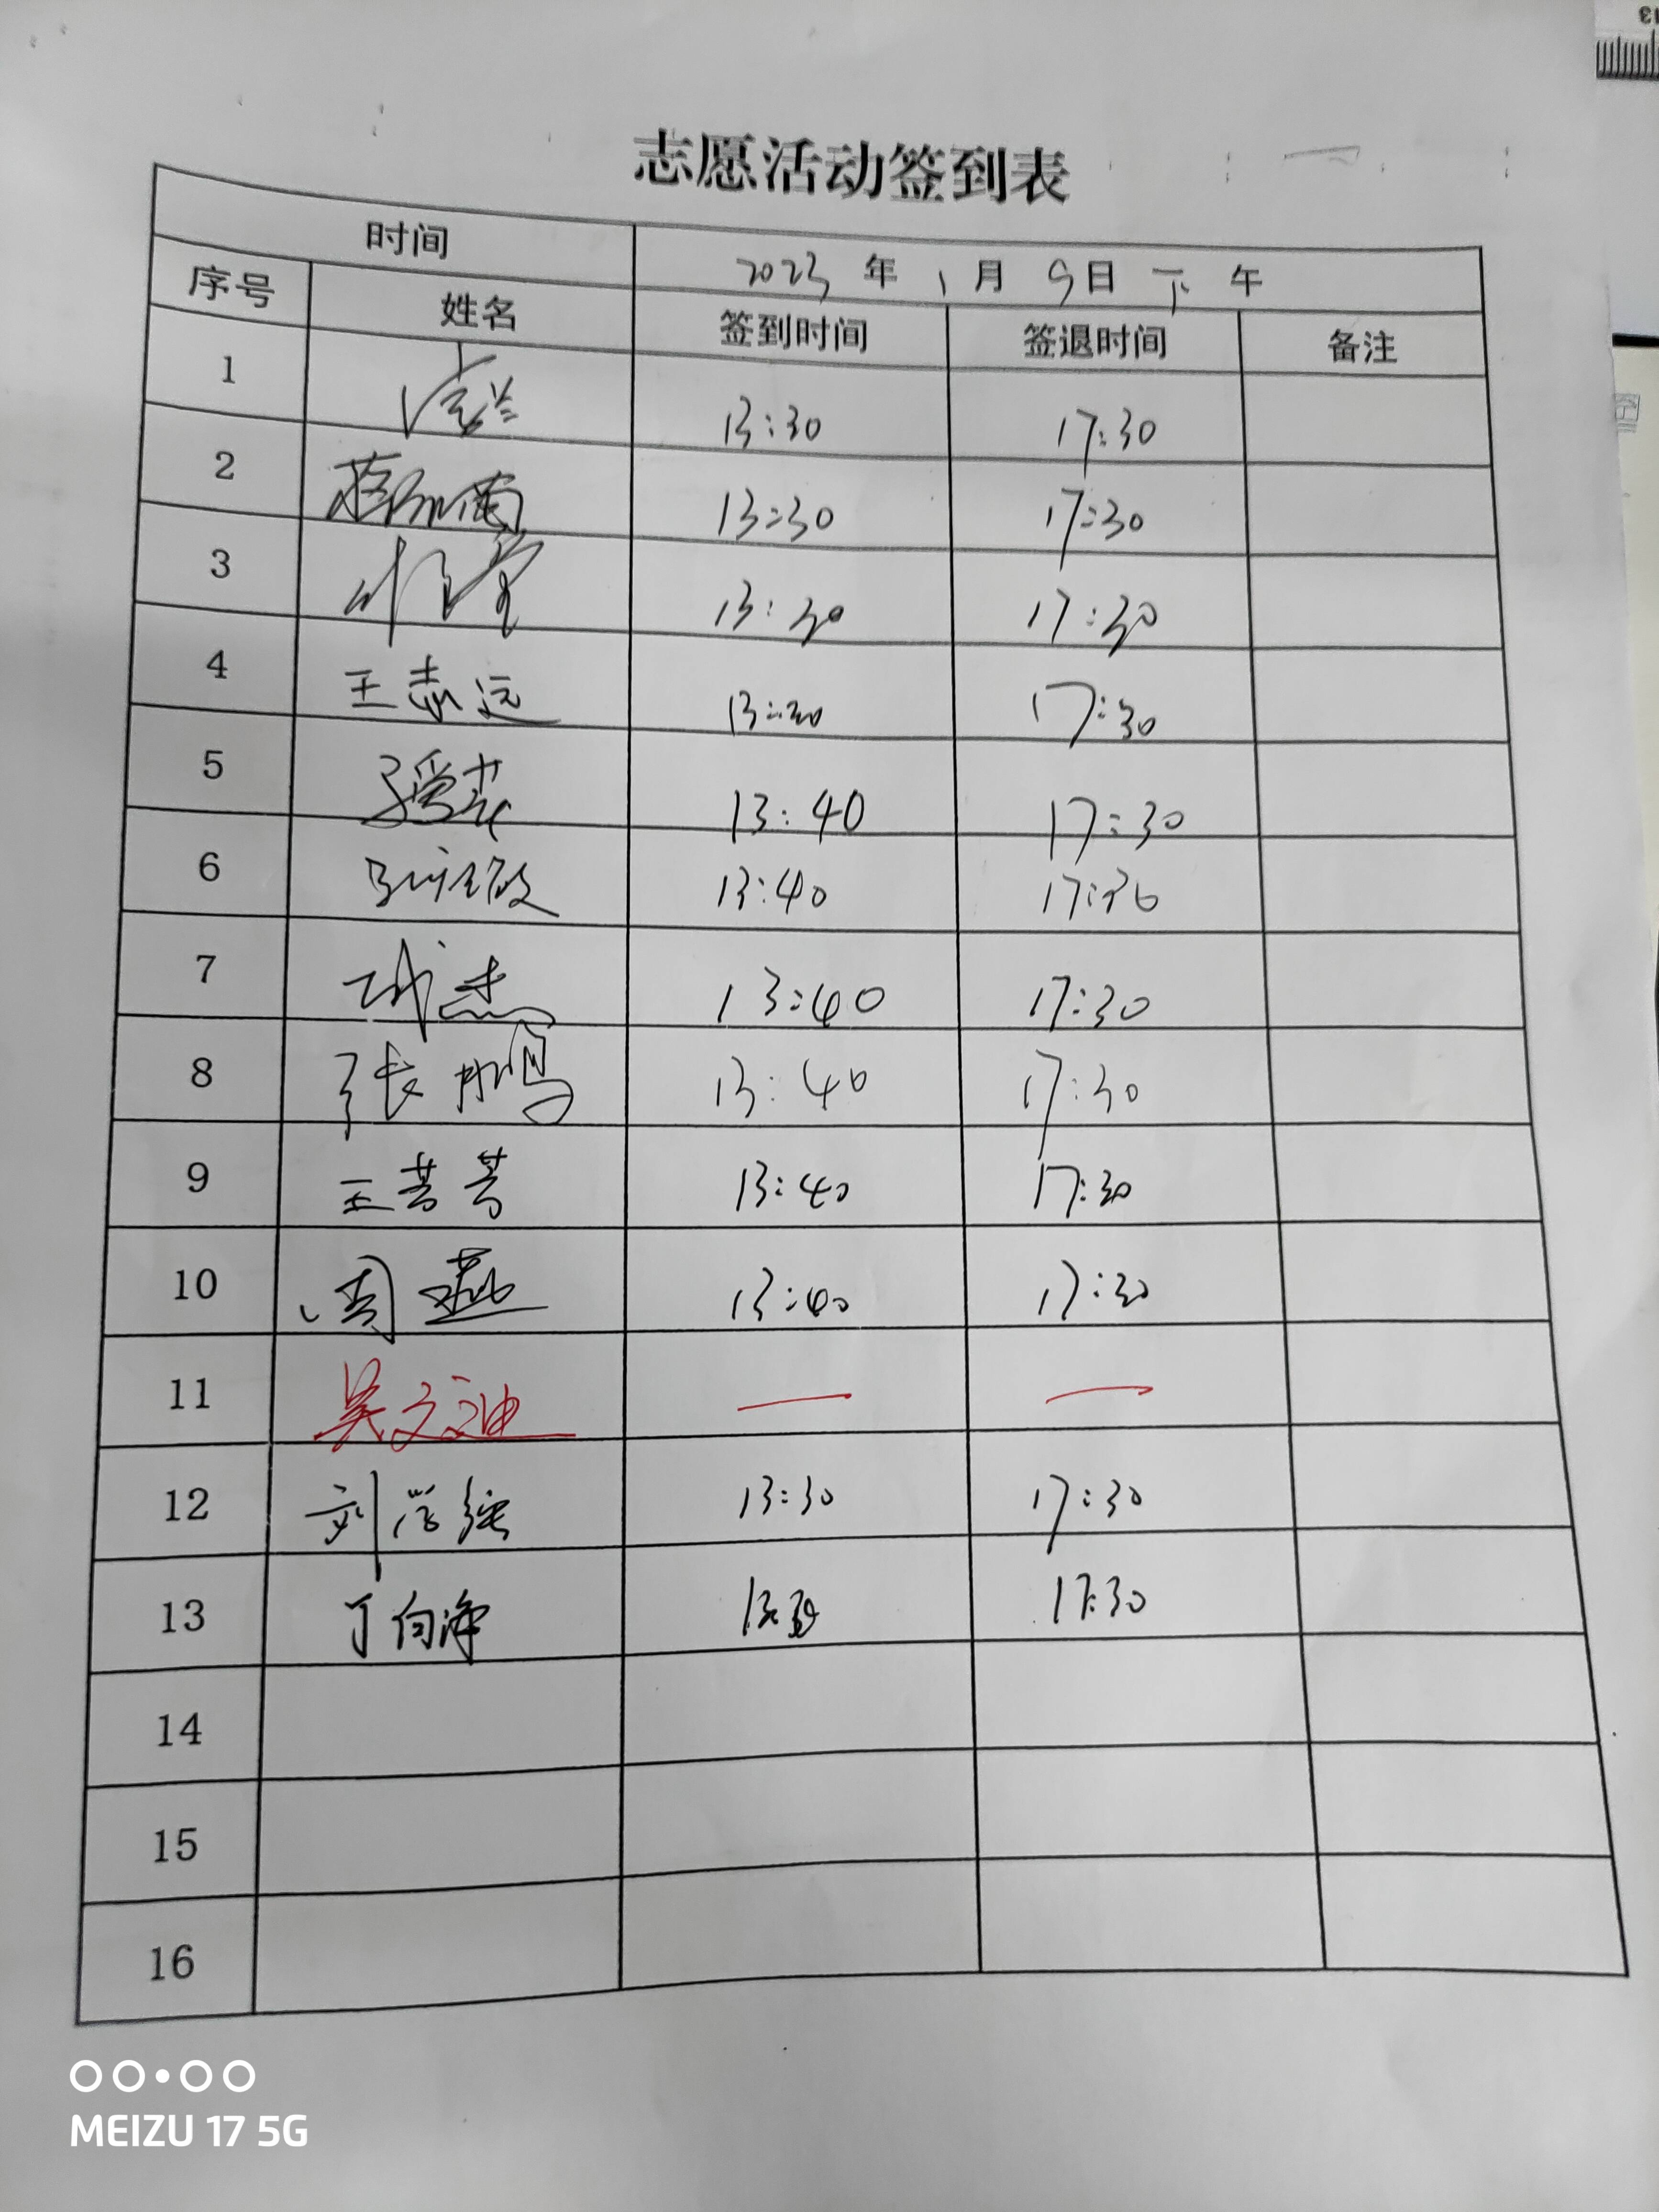 志愿活动签到表
时间 2023 年 1 月 9 日 下 午
序号 姓名 签到时间 签退时间 备注
1 13:30 17:30
2 13:30 17:30
3 13:30 17:30
4 王志远 13:30 17:30
5 13:40 17:30
6 13:40 17:30
7 13:40 17:30
8 张鹏 13:40 17:30
9 王芳芳 13:40 17:30
10 周燕 13:40 17:30
11 吴文迪 — —
12 刘 13:30 17:30
13 丁向净 17:30
14
15
16
MEIZU 17 5G